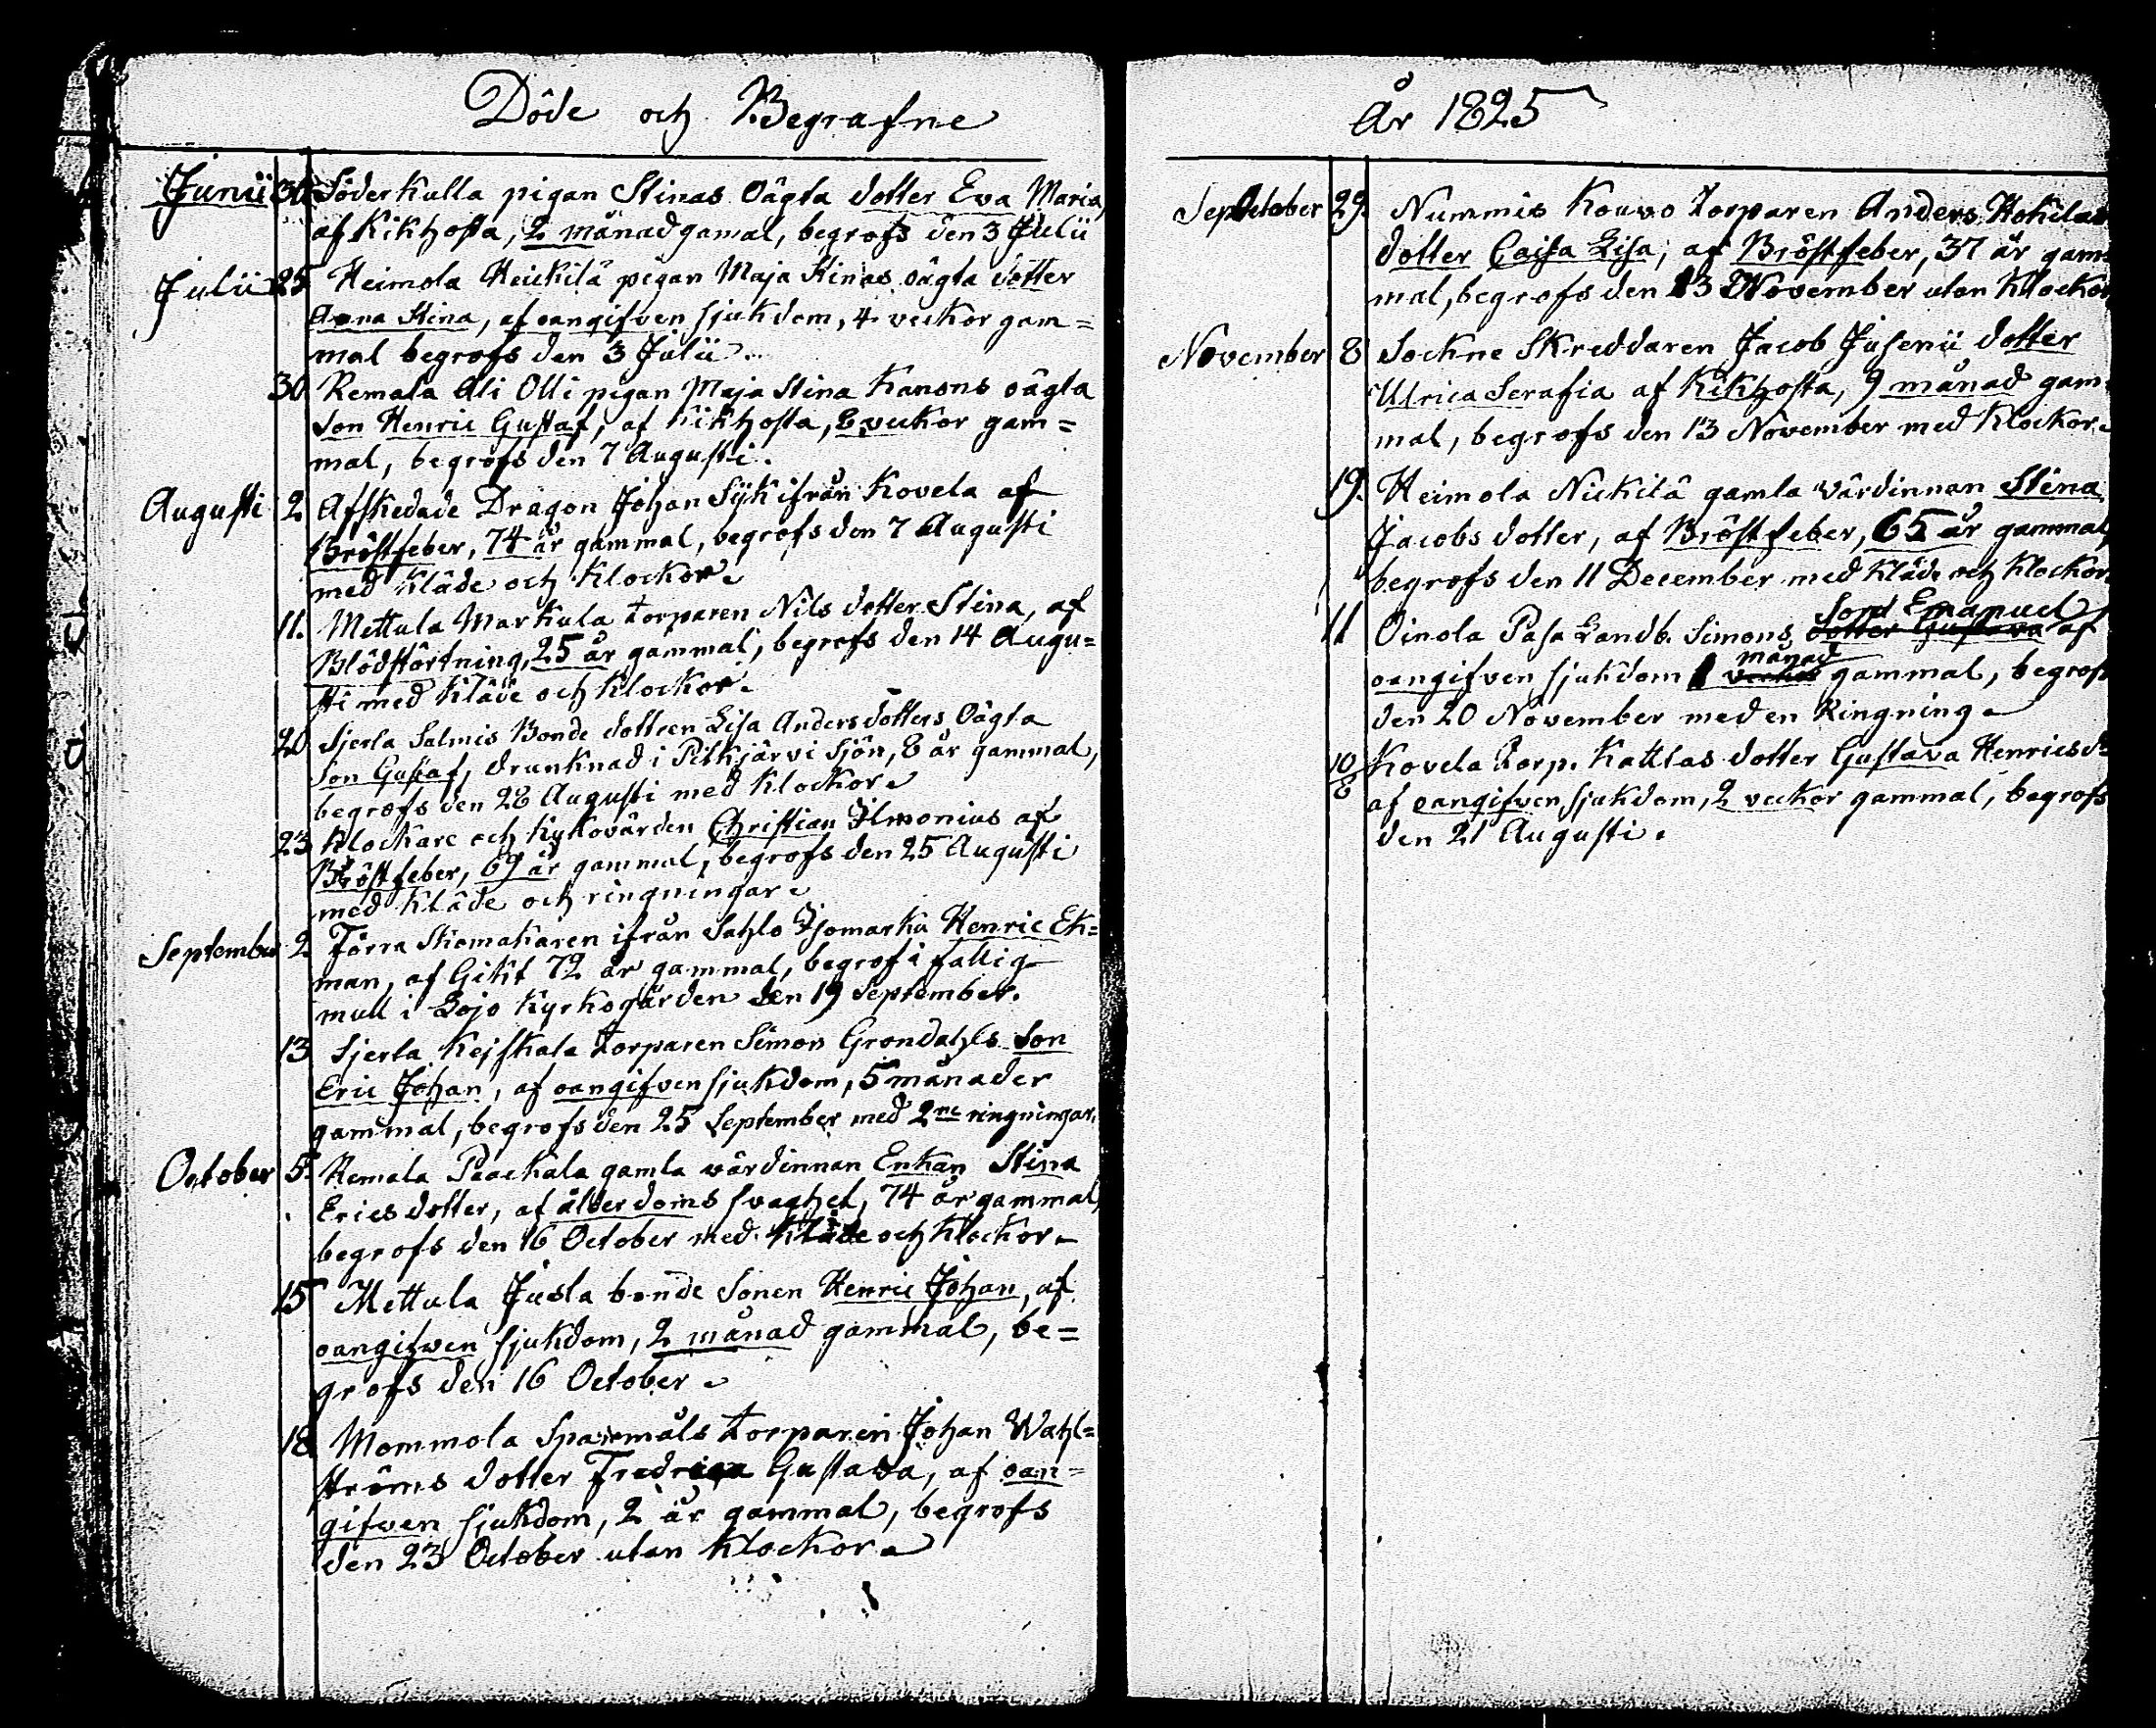 Döde och Begrafne
Junii 30 Söderkulla pigan Stinas Oägta dotter Eva Maria,
af Kikhosta, 2 månad gamal, begrofs den 3 Julii
Julii 25 Heimola Heickilä pigan Maja Stinas oägta dotter
Anna Stina, af oangifven sjukdom, 4 veckor gam=
mal begrofs den 3 Julii
30 Remala Ali Olli pigan Maja Stina Kanons oägta
Son Henric Gustaf, af Kikhosta, 8 veckor gam=
mal, begrofs den 7 Augusti.
Augusti 2 Afskedade Dragon Johan Sÿk ifrån Kovela af
Bröstfeber, 74 år gammal, begrofs den 7 Augusti
med Kläde och Klockor.
11. Mettula Markula torparen Nils dotter Stina, af
Blodstörtning, 25 år gammal, begrofs den 14 Augu=
sti med Kläde och Klockor.
20 Sjerla Salmis Bonde dottren Lisa Anders dotters Oägta
Son Gustaf, drunknad i Pitkjärvi Sjön, 8 år gammal,
begrofs den 28 Augusti med Klockor.
23 Klockare och Kykovärden Christian Ilmonius af
Bröstfeber, 69 år gammal, begrofs den 25 Augusti
med Kläde och ringningar.
September 2. Förra Skomakaren ifrån Sahlo Isomarku Henric Ek=
man, af Gikt 72 år gammal, begrof i fattig
mull i Lojo Kyrkogården den 19 September.
13 Sjerla Kejskala torparen Simon Grondahls Son
Eric Johan, af oangifven sjukdom, 5 månader
gammal, begrofs den 25 September med 2ne ringningar.
October 5. Remala Paackala gamla värdinnan Enkan Stina
Erics dotter, af ålderdoms svaghet, 74 år gammal,
begrofs den 16 October med Kläde och Klockor.
15 Mettula Jusla bonde Sonen Henric Johan, af
oangifven sjukdom, 2 månad gammal, be=
grofs den 16 October.
18. Mommola torparen Johan Wahl=
ströms dotter Fredrica Gustava, af oan=
gifven sjukdom, 2 år gammal, begrofs
den 23 October utan Klockor.
År 1825
October 29. Nummis Kouvo torparen Anders Hokilas
dotter Caisa Lisa, af Bröstfeber, 37 år gam=
mal, begrofs den 13 November utan Klockor
November 8 Sockne Skreddaren Jacob Jusenii dotter
Ulrica Serafia af Kikhosta, 9 månad gam=
mal, begrofs den 13 November med Klockor.
19. Heimola Nickilä gamla värdinnan Stina
Jacobs dotter, af Bröstfeber, 65 år gammal,
begrofs den 11 December med Kläde och Klockor.
11 Oinola Pasa Landb. Simons dotter Gustava Son Emanuel af
oangifven sjukdom 1 veckor månad gammal, begrofs
den 20 November med en Ringning.
10/8 Kovela Torp. Kattlas dotter Gustava Henricsdr
af oangifven sjukdom, 2 veckor gammal, begrofs
den 21 Augusti.